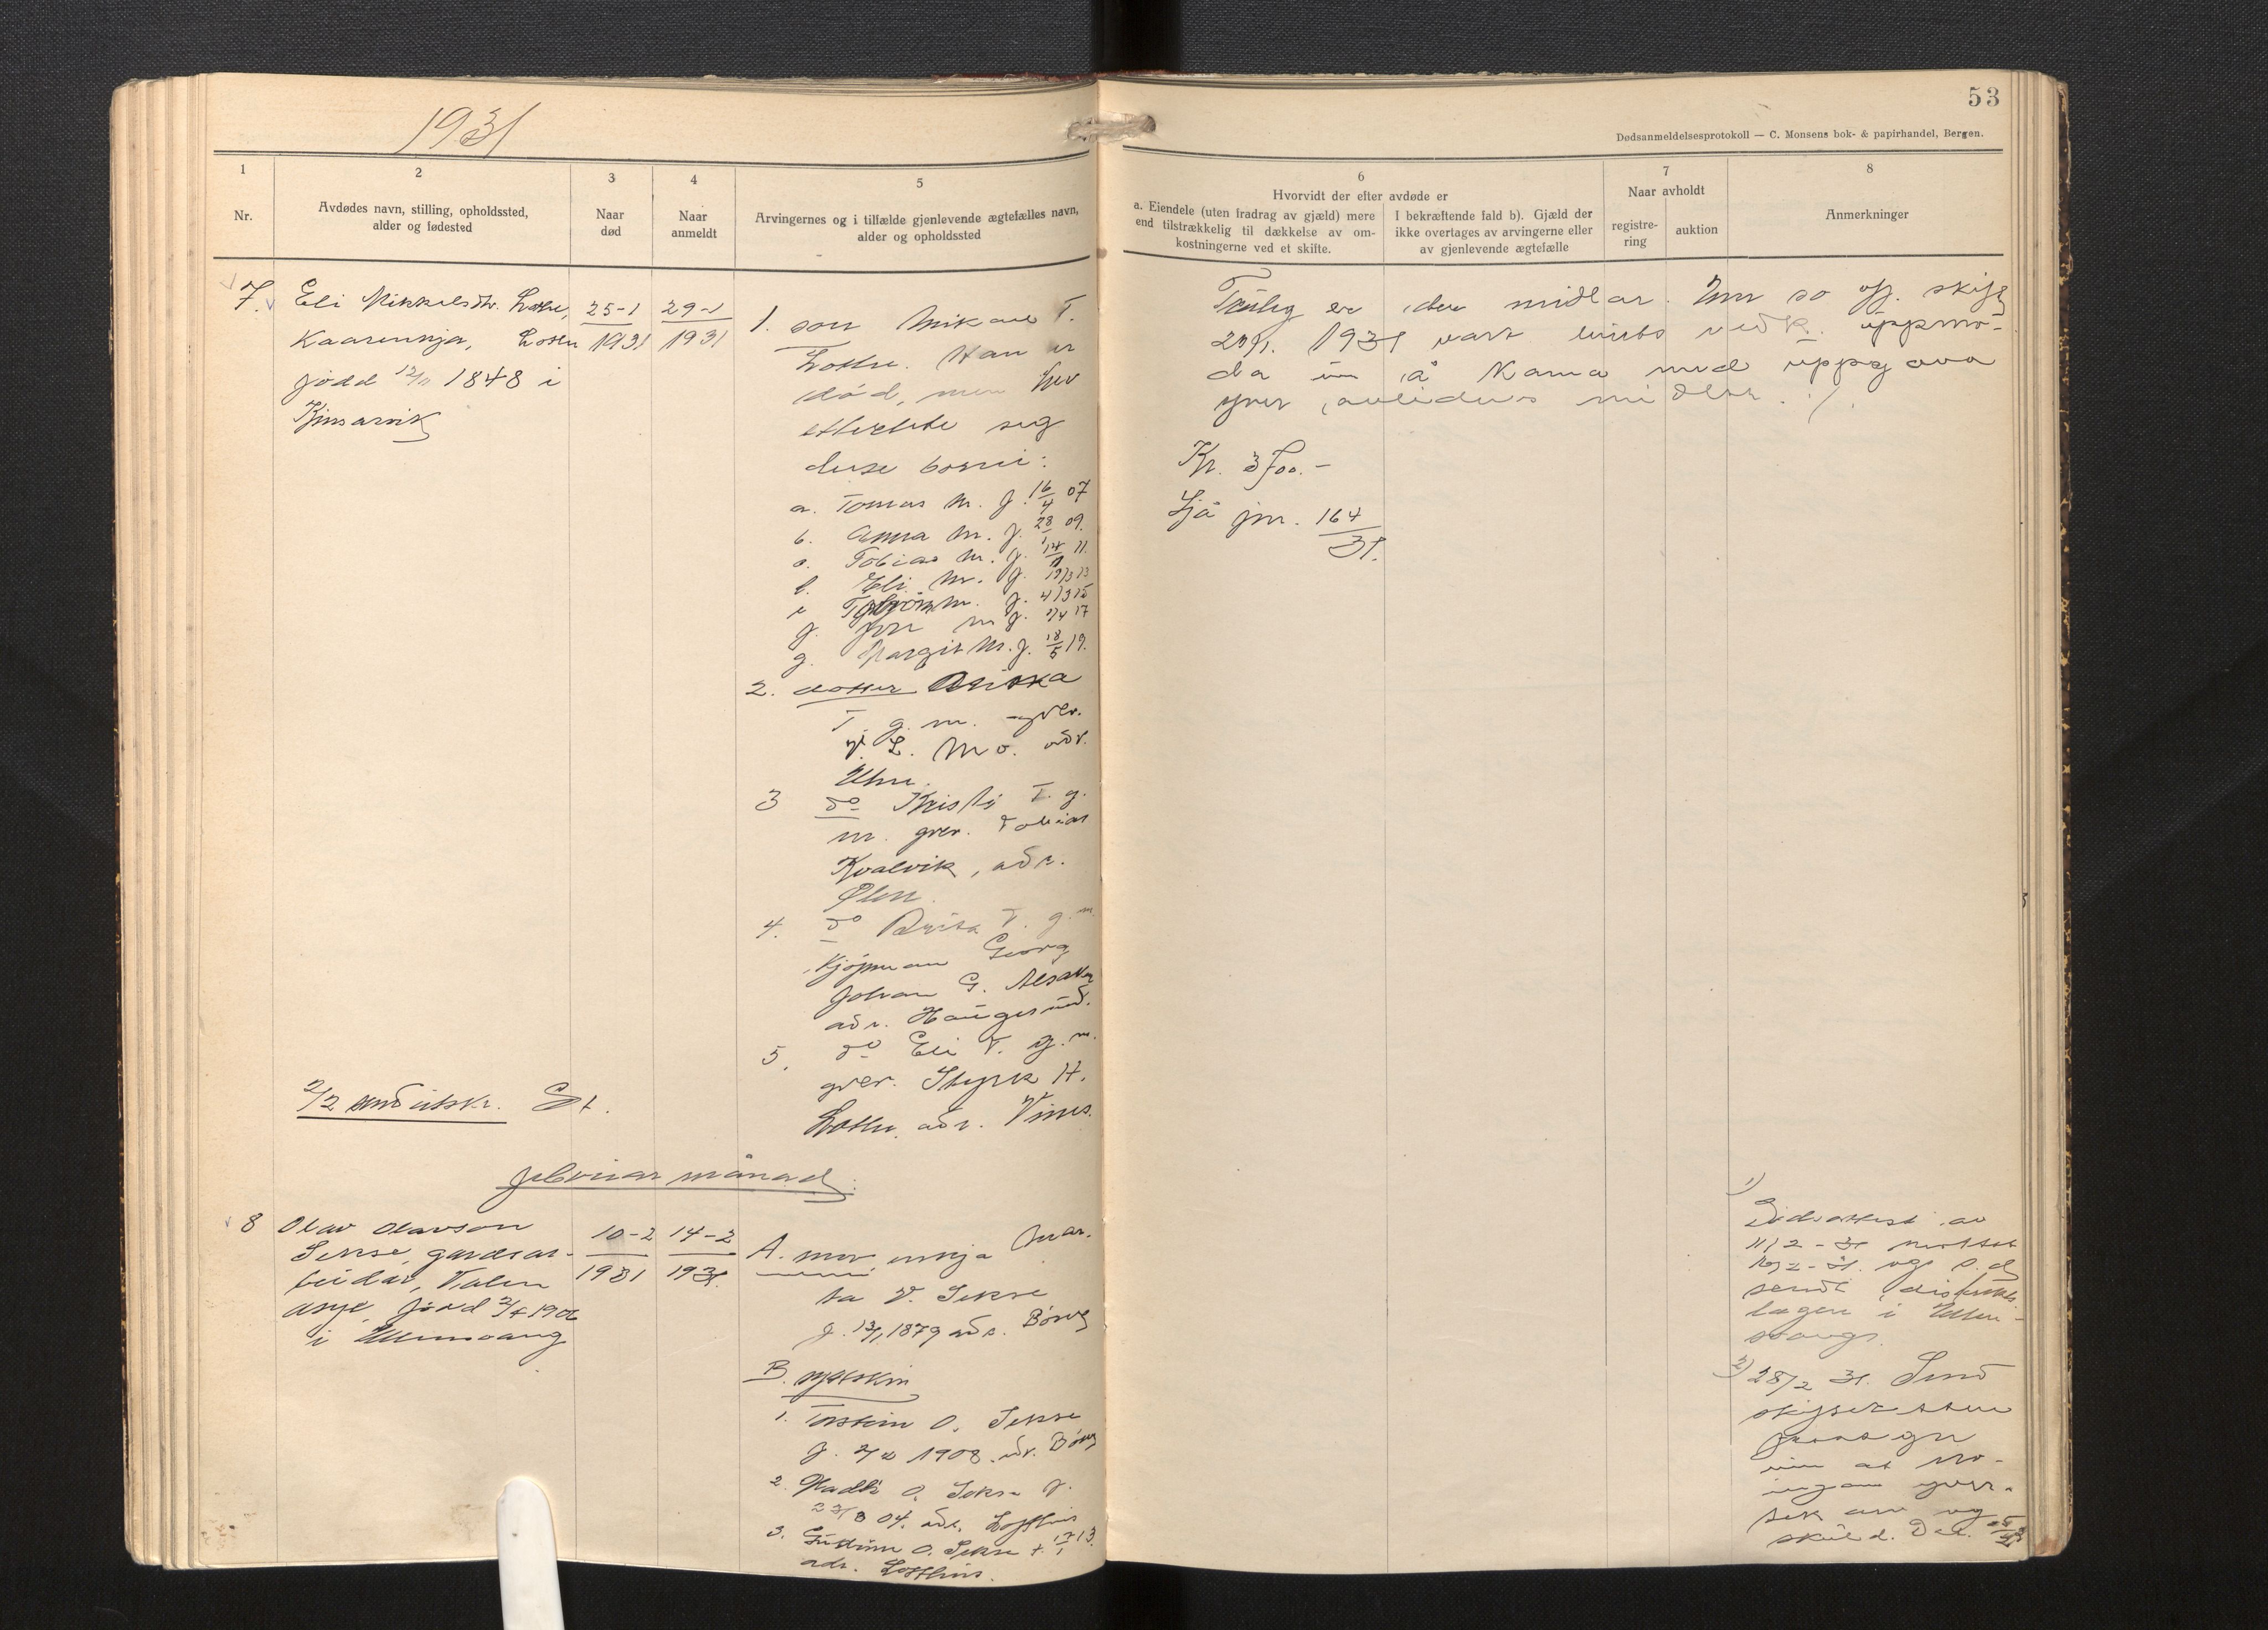 1931
53
Dødsanmeldelsesprotokoll — C. Monsens bok- & papirhandel, Bergen.
1
2
3
4
5
6
7
8
Nr.
Avdødes navn, stilling, opholdssted,
alder og fødested
Naar
død
Naar
anmeldt
Arvingernes og i tilfælde gjenlevende ægtefælles navn,
alder og opholdssted
Hvorvidt der efter avdøde er
a. Eiendele (uten fradrag av gjæld) mere
end tilstrækkelig til dækkelse av om-
kostningerne ved et skifte.
I bekræftende fald b). Gjæld der
ikke overtages av arvingerne eller
av gjenlevende ægtefælle
Naar avholdt
registre-
ring
auktion
Anmerkninger
7.
Eli Mikkelsdtr. Lothe,
Kaarenkja, Lothe
fødd 12/11 1848 i
Kinsarvik
25-1
1931
29-1
1931
1. son Mikael T.
Lothe. Han er
død, men hev
etterlete seg
desse borni:
a. Tomas M. f. 16/4 07
b. Anna M. f. 28/1 09.
c. Tobias M. f. 11.
d. Eli M. f. 19/3 13
e M. f. 4/3 15
f. Jon M f. 17
g. Margit M. f. 18/5 19.
2. dotter
T. g. m.
L. Mo. adr.
Utne.
3 do Kristi T. g.
m. grer. Tobias
Kvalvik, adr.
Ølen.
4. do Brita T. g. m.
Kjøpmann Georg
Johan G. Alsaker
adr. Haugesund.
5. do Eli T. g. m.
grer. Styrk H.
Lothe adr. Vines.
2/2 send utskr. St.
Truleg er der midlar. Um so off. skifte
29/1. 1931 vart vedk. uppmo-
da um å koma med uppgaava
yver avlidnes midlar. ./.
Kr. 3700.-
Sjå jnr. 164
31.
februar månad.
8
Olav Olavson
Sekse, gardsar-
beidar,
fødd 1906
i Ullensvang
10-2
1931
14-2
1931.
A. mor, enkja Mar-
ta V. Sekse
f. 1879 adr. Børve
B. sysken
1. Torstein O. Sekse
f. 1908. adr. Børve
2. O. Sekse f.
04. adr. Lofthus
3. O. Sekse f. 13.
adr. Lofthus.
1)
Dødsattest av
11/2-31 mottat
og s. d.
sendt
lagen i Ullen-
svang.
2) 28/2 31. Send
um at
og
skuld.